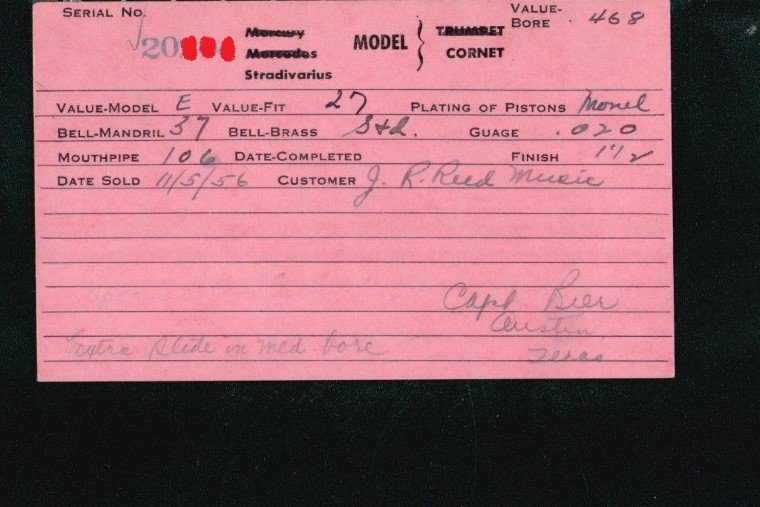 SERIAL NO. 20
Mercury
Mercedes
Stradivarius
MODEL
TRUMPET
CORNET
VALUE-BORE .468
VALUE-MODEL E VALUE-FIT 27 PLATING OF PISTONS Monel
BELL-MANDRIL 37 BELL-BRASS Std. GUAGE .020
MOUTHPIPE 106 DATE-COMPLETED FINISH
DATE SOLD 11/5/56 CUSTOMER J. R. Reed Music
Capt Bier
Austin,
Extra slide in med. bore
Texas